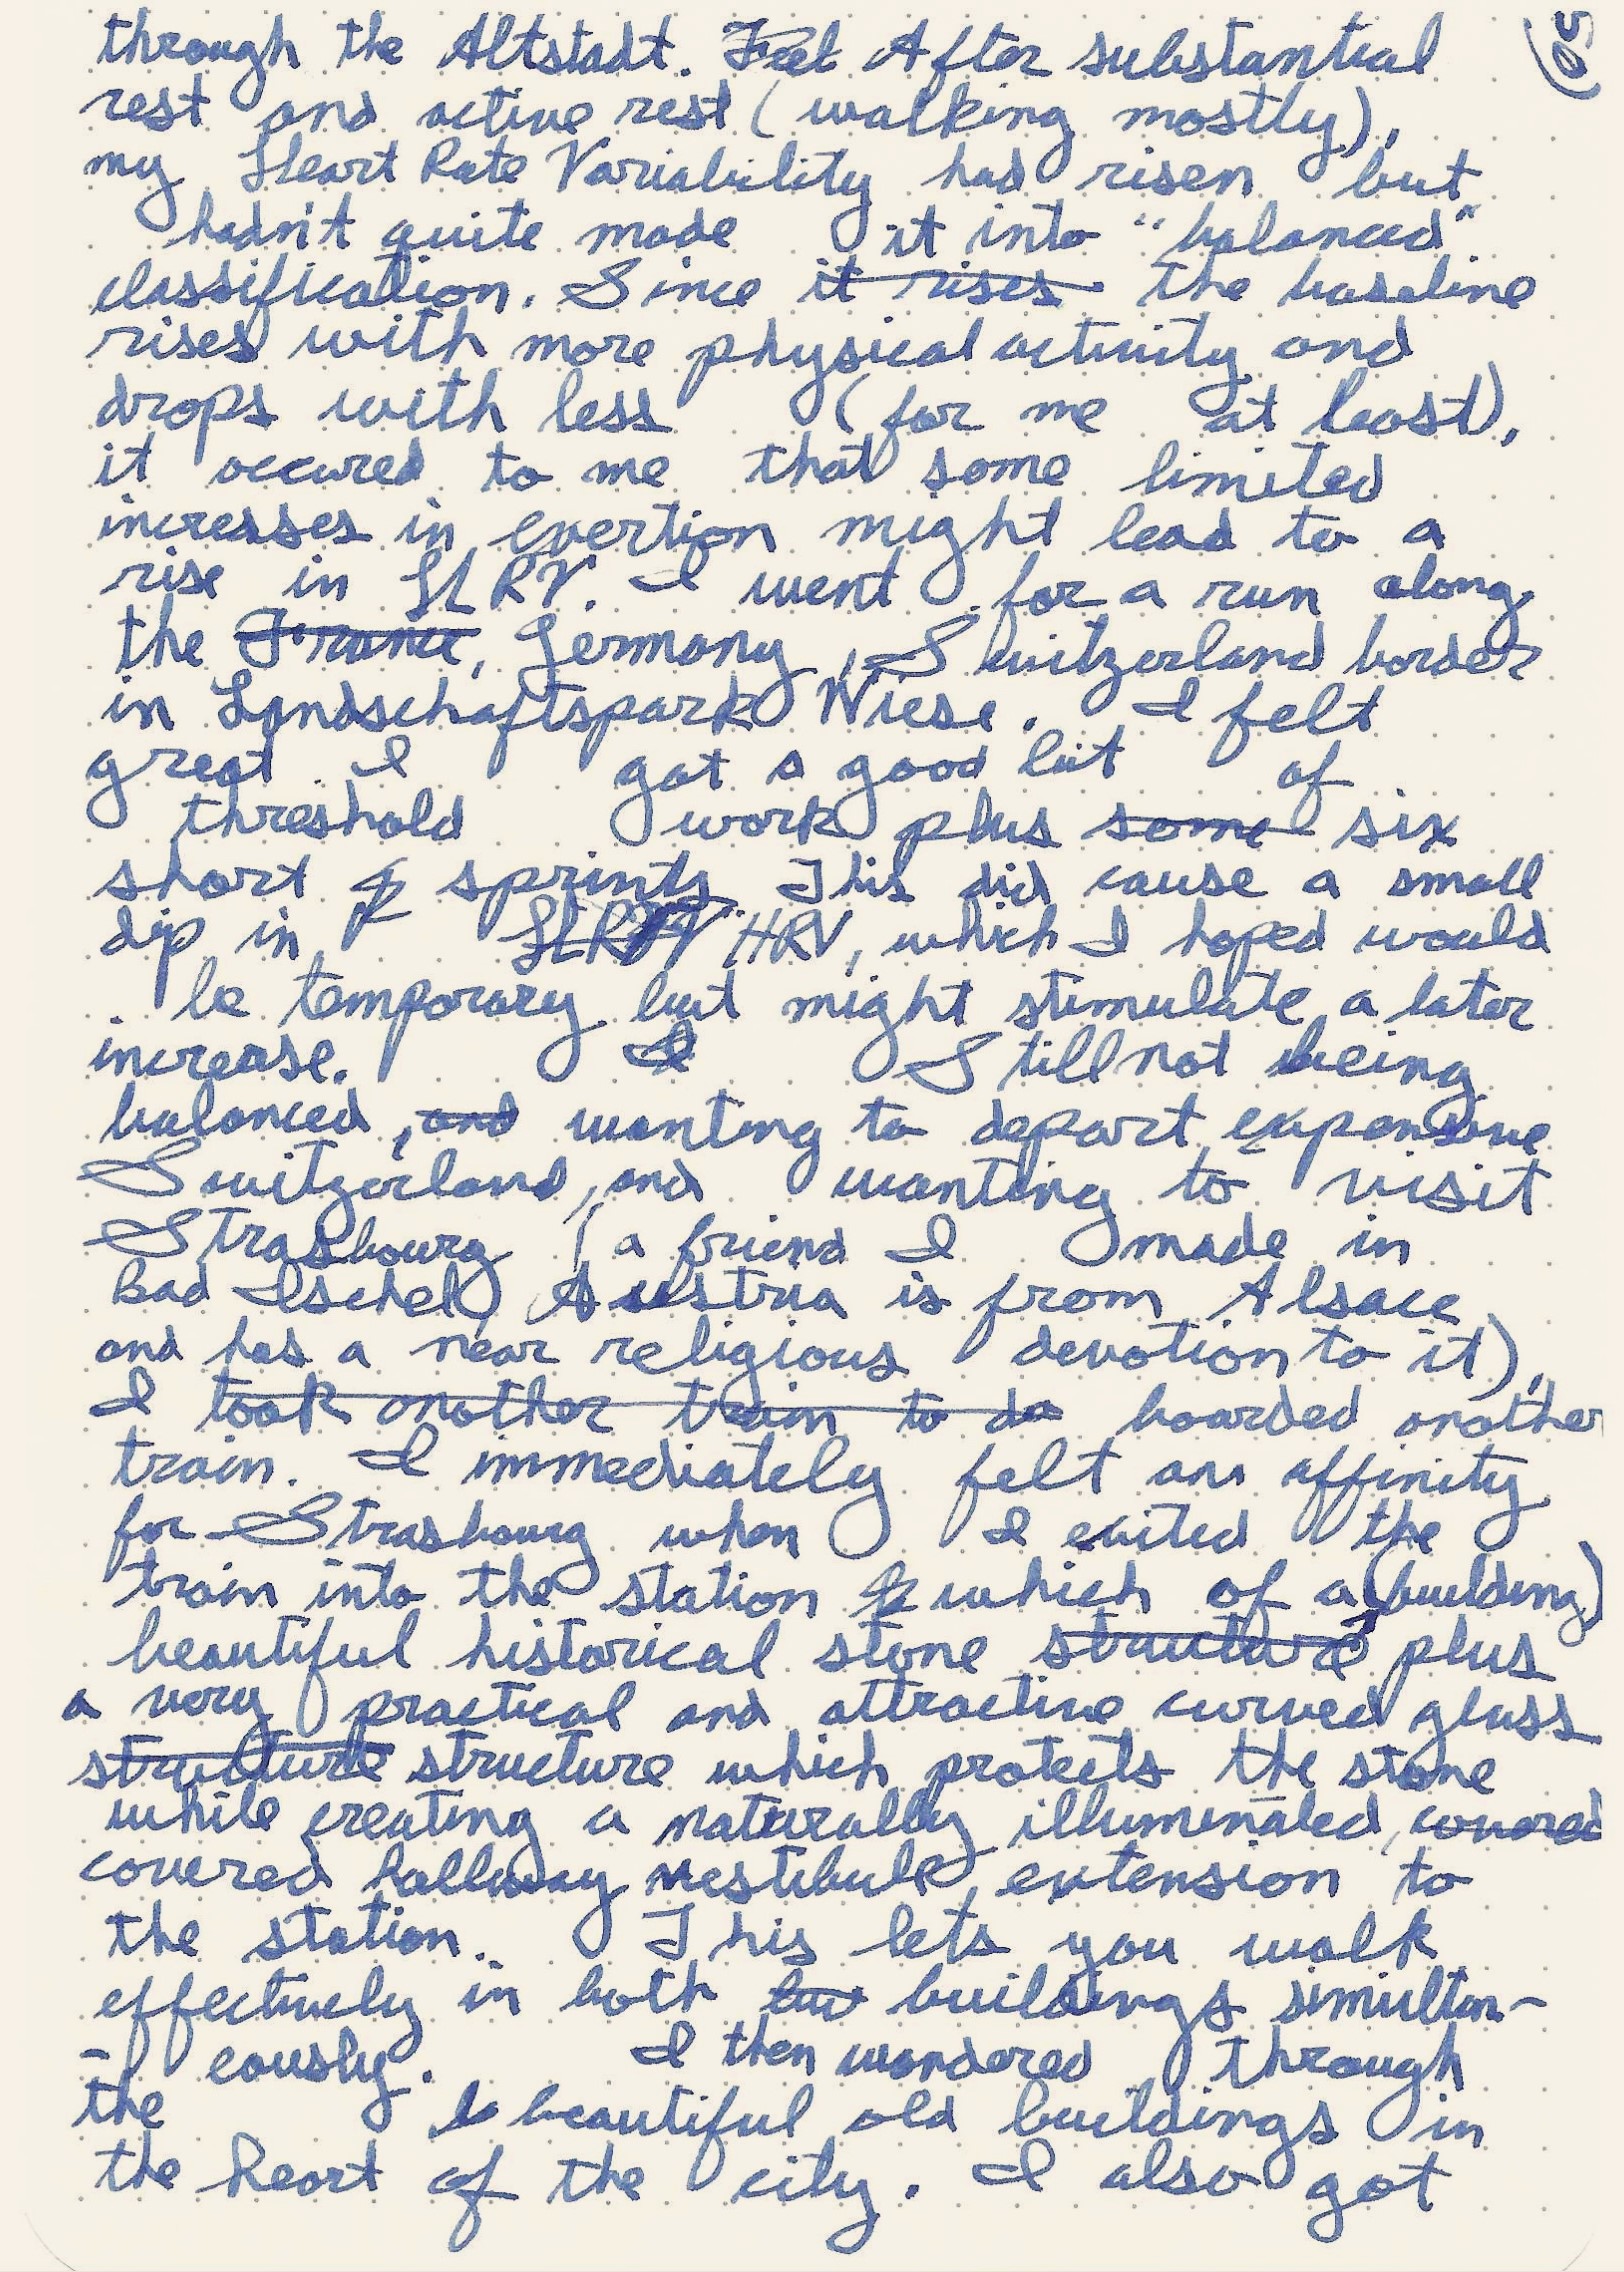 through the Altstadt. Feel After substantial
rest and active rest (walking mostly),
my Heart Rate Variability had risen but
hadn't quite made it into "balanced"
classification. Since it rises the baseline
rises with more physical activity and
drops with less (for me at least),
it occured to me that some limited
incresses in exertion might lead to a
rise in HRV. I went for a run along
the France, Germany, Switzerland border
in Landschaftspark Wiese. I felt
great. I got a good bit of
threshold work plus some six
short sprints. This did cause a small
dip in HRV HRV, which I hoped would
be temporary but might stimulate a later
increase. I Still not being
balanced, and wanting to depart expensive
Switzerland, and wanting to visit
Strasbourg (a friend I made in
Bad Ischel, Austria is from Alsace
and has a near religious devotion to it),
I took another train to do boarded another
train. I immediately felt an affinity
for Strasbourg when I exited the
train into the station which of a (building)
beautiful historical stone structure plus
a very practical and attractive curved glass
structure structure which protects the stone
while creating a naturally illuminated, covered
covered hallway vestibule extension to
the station. This lets you walk
effectively in both bui buildings simultan-
- eously. I then wandered through
the b beautiful old buildings in
the heart of the city. I also got